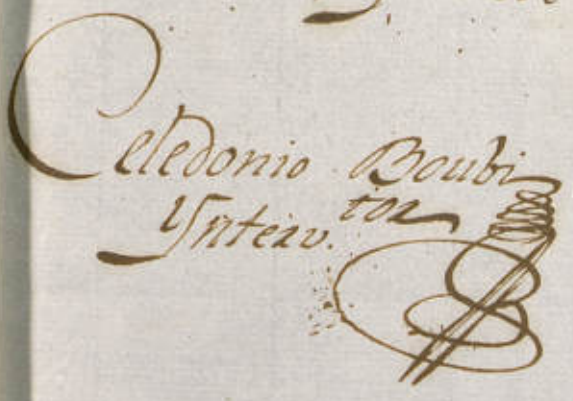 Celedonio Boubi
Ynterv. tor